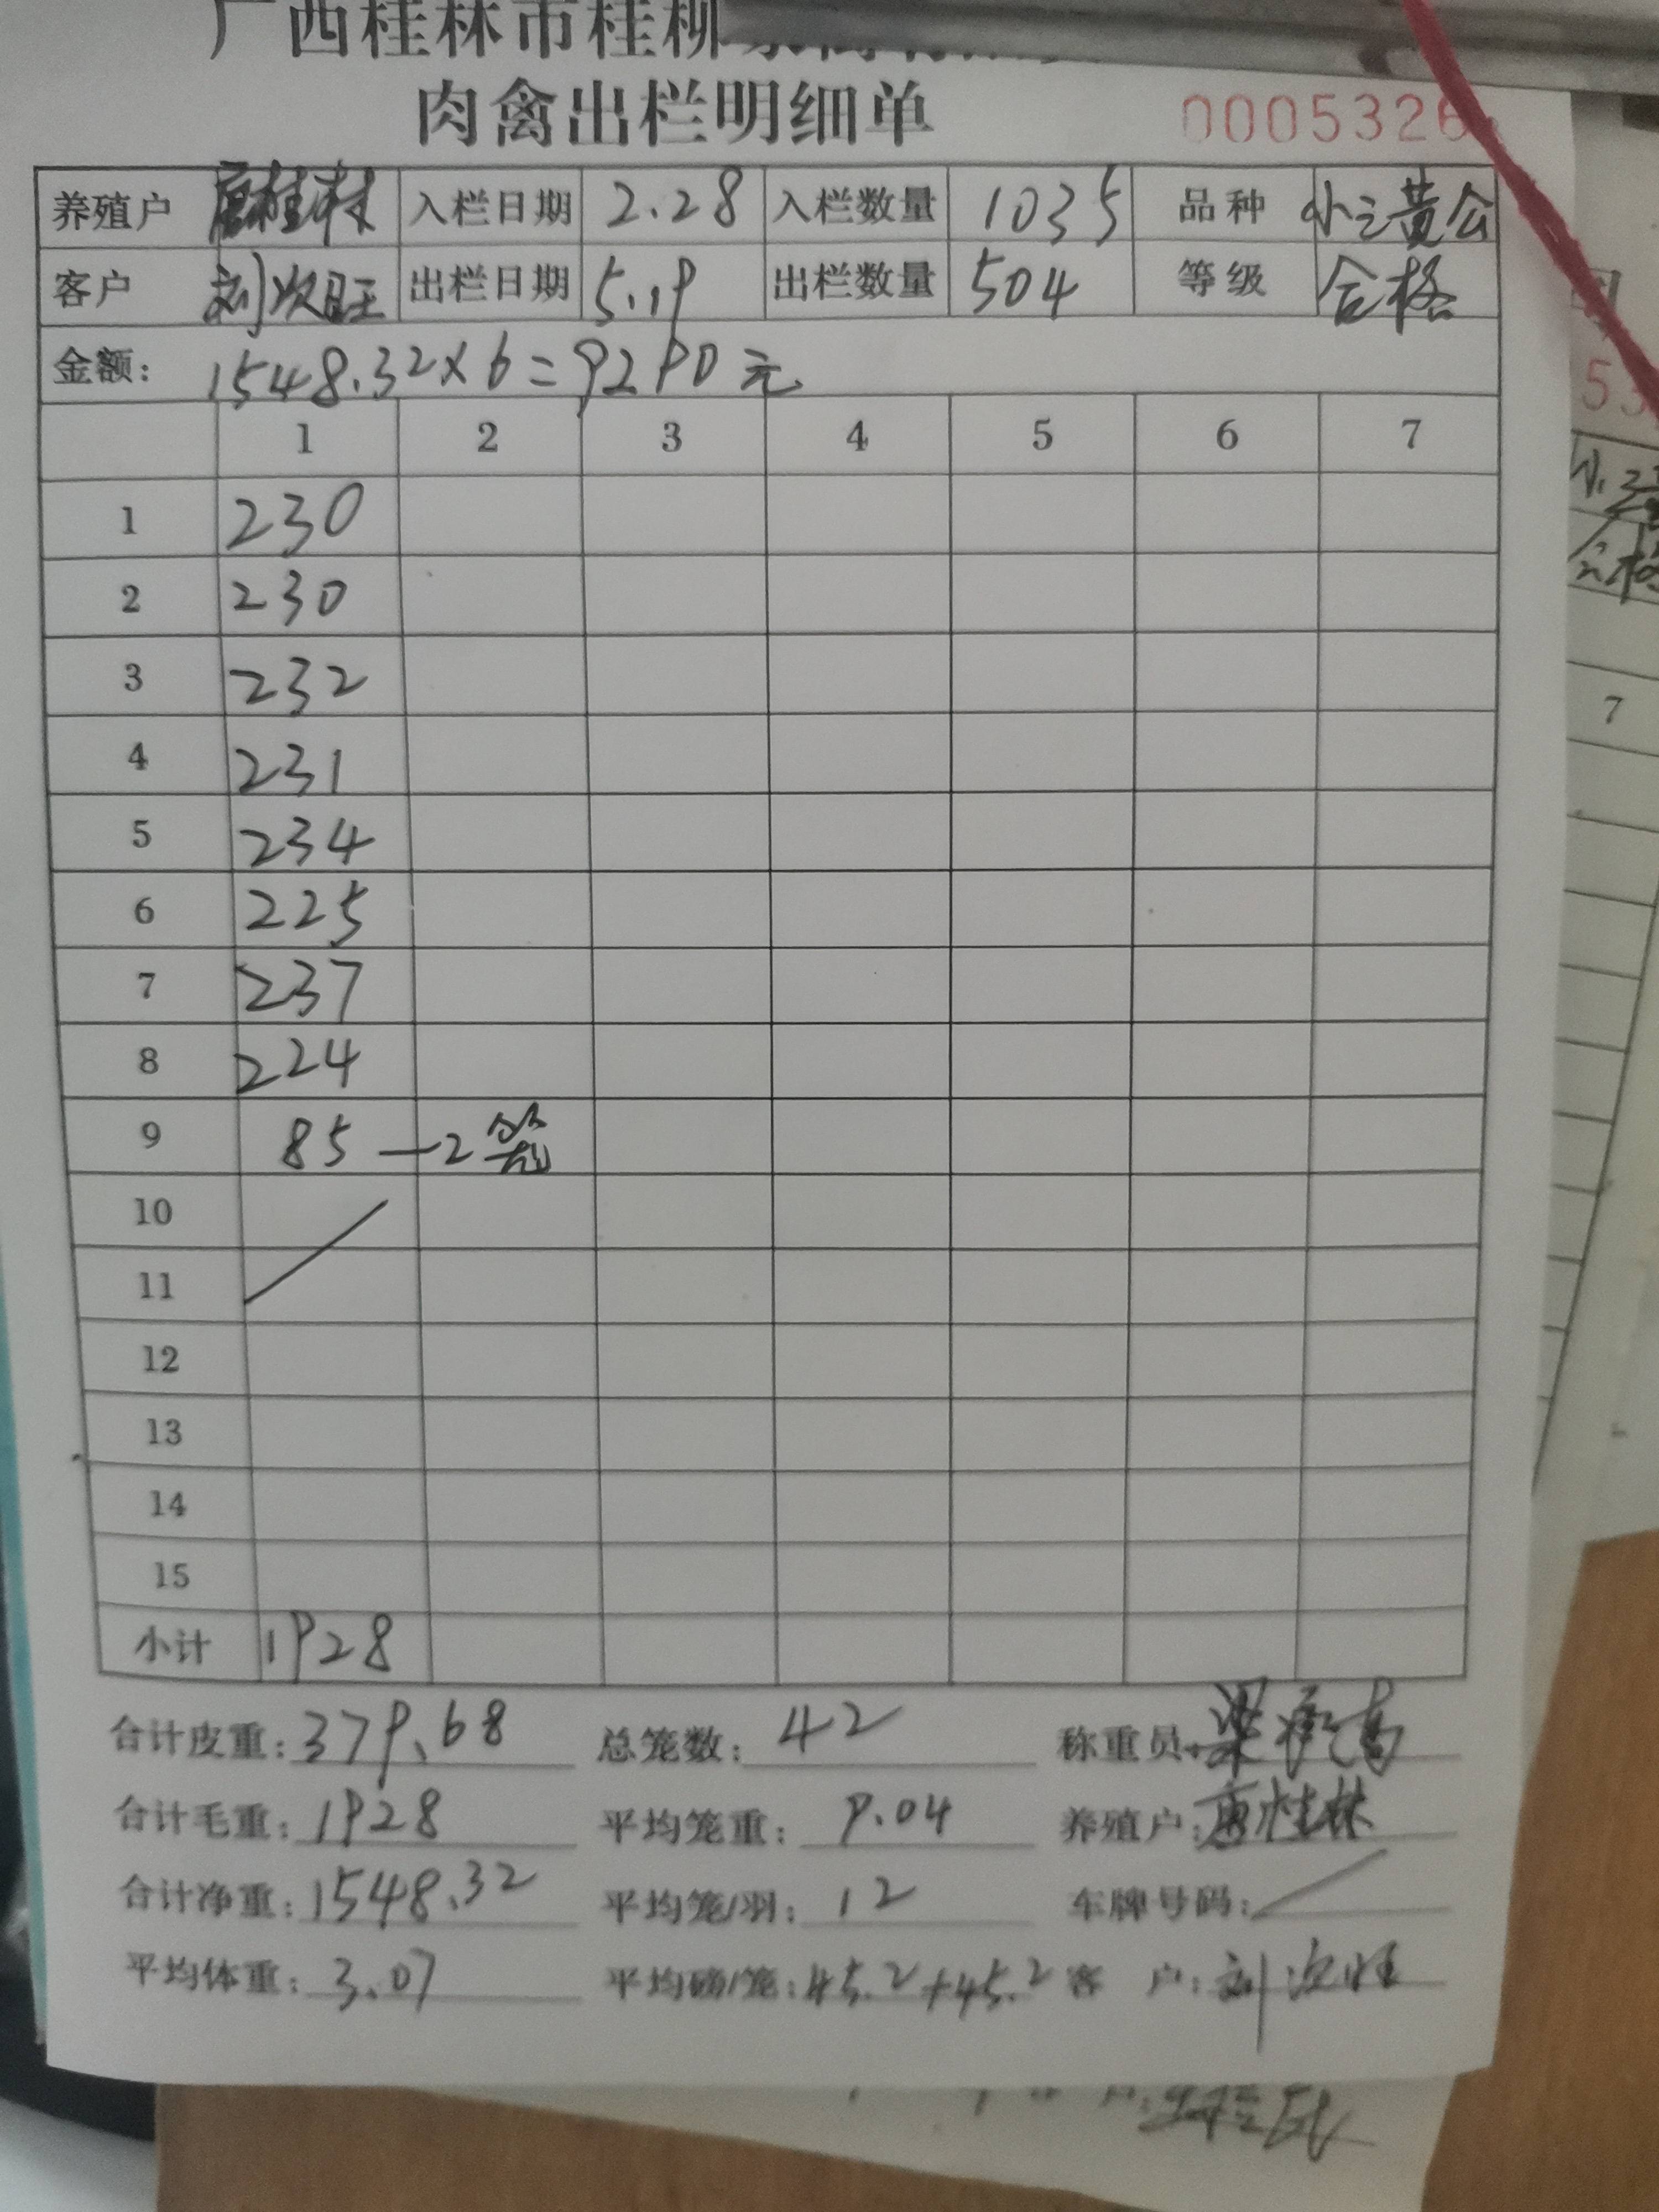 广西桂林市桂柳
肉禽出栏明细单 0005326
养殖户 唐桂林 入栏日期 2.28 入栏数量 1035 品种 小三黄公
客户 刘次旺 出栏日期 5.19 出栏数量 504 等级 合格
金额: 1548.32×6=9290元
1 2 3 4 5 6 7
1 230
2 230
3 232
4 231
5 234
6 225
7 237
8 224
9 85—2笼
10
11
12
13
14
15
小计 1928
合计皮重: 379.68 总笼数: 42 称重员:
合计毛重: 1928 平均笼重: 9.04 养殖户: 唐桂林
合计净重: 1548.32 平均笼/羽: 12 车牌号码: /
平均体重: 3.07 平均磅/笼: 45.2+45.2 客户: 刘次旺
7